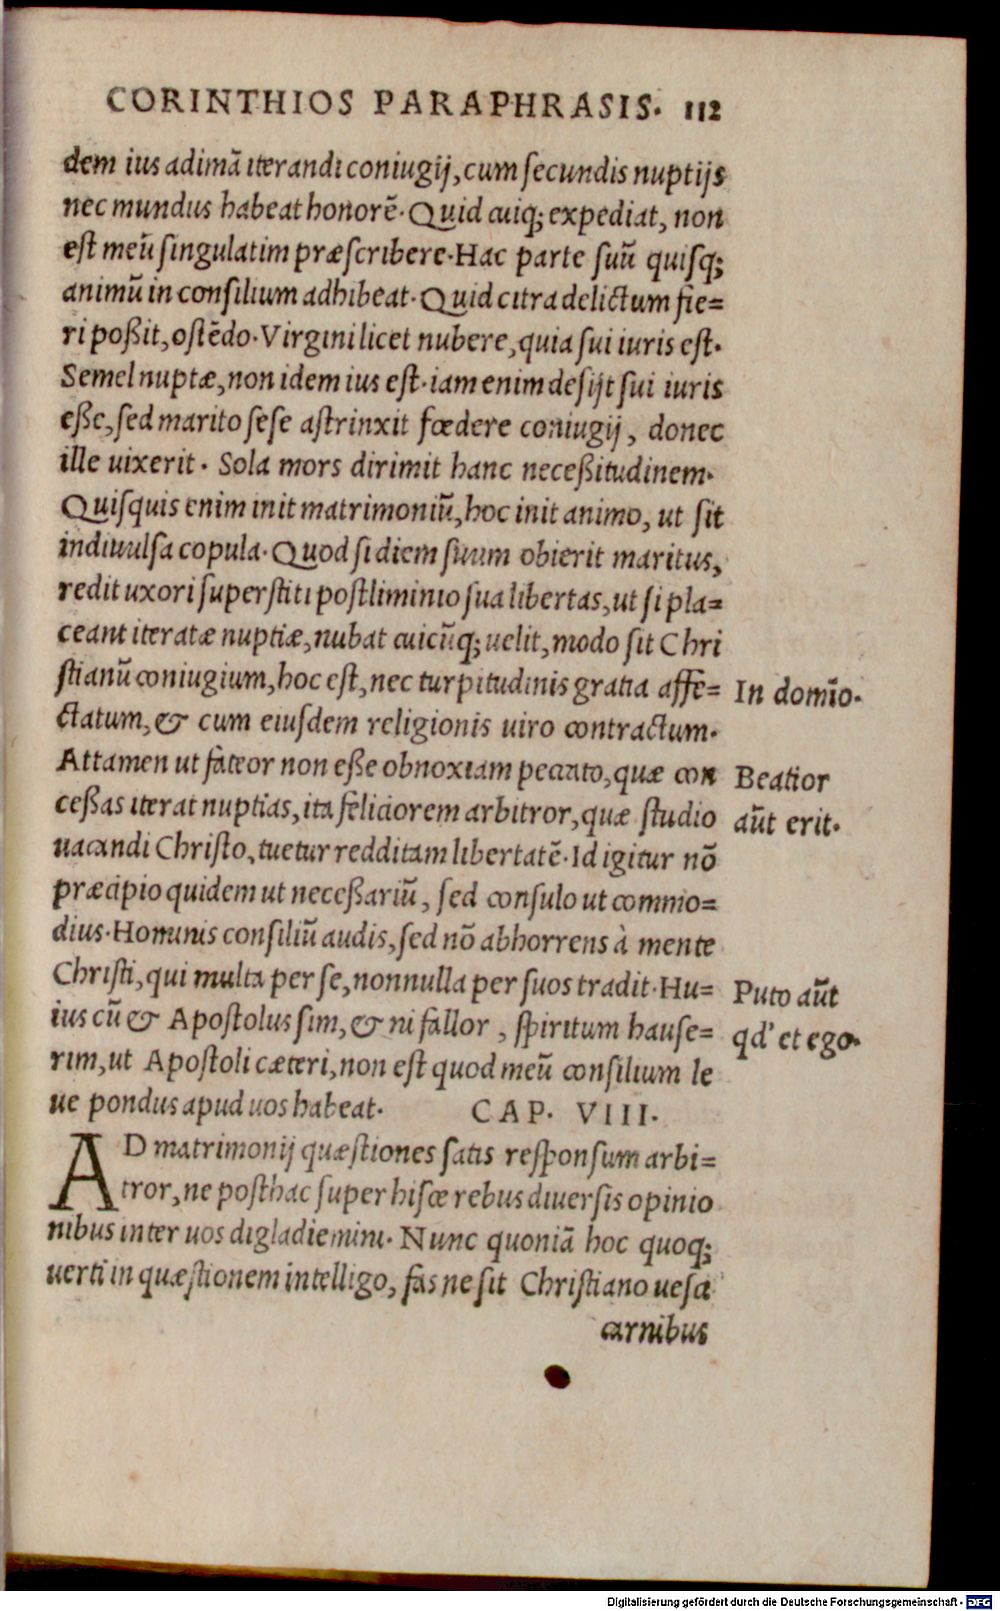 CORINTHIOS PARAPHRASIS. 112
dem ius adimã iterandi coniugij, cum secundis nuptijs
nec mundus habeat honorẽ. Quid cuiq; expediat, non
est meũ singulatim præscribere. Hac parte suũ quisq;
animũ in consilium adhibeat. Quid citra delictum fie=
ri poßit, ostẽdo. Virgini licet nubere, quia sui iuris est.
Semel nuptæ, non idem ius est. iam enim desijt sui iuris
eße, sed marito sese astrinxit fœdere coniugij, donec
ille uixerit. Sola mors dirimit hanc neceßitudinem.
Quisquis enim init matrimoniũ, hoc init animo, ut sit
indiuulsa copula. Quod si diem suum obierit maritus,
redit uxori superstiti postliminio sua libertas, ut si pla=
ceant iteratæ nuptiæ, nubat cuicũq; uelit, modo sit Chri
stianũ coniugium, hoc est, nec turpitudinis gratia affe=
In domĩo.
ctatum, & cum eiusdem religionis uiro contractum.
Attamen ut fateor non eße obnoxiam peccato, quæ con
Beatior
ceßas iterat nuptias, ita feliciorem arbitror, quæ studio
aũt erit.
uacandi Christo, tuetur redditam libertatẽ. Id igitur nõ
præcipio quidem ut neceßariũ, sed consulo ut commo=
dius. Hominis consiliũ audis, sed nõ abhorrens à mente
Christi, qui multa per se, nonnulla per suos tradit. Hu=
Puto aũt
ius cũ & Apostolus sim, & ni fallor, spiritum hause=
qd' et ego.
rim, ut Apostoli cæteri, non est quod meũ consilium le
ue pondus apud uos habeat. CAP. VIII.
AD matrimonij quæstiones satis responsum arbi=
tror, ne posthac super hisce rebus diuersis opinio
nibus inter uos digladiemini. Nunc quoniã hoc quoq;
uerti in quæstionem intelligo, fas ne sit Christiano uesci
carnibus
Digitalisierung gefördert durch die Deutsche Forschungsgemeinschaft - DFG